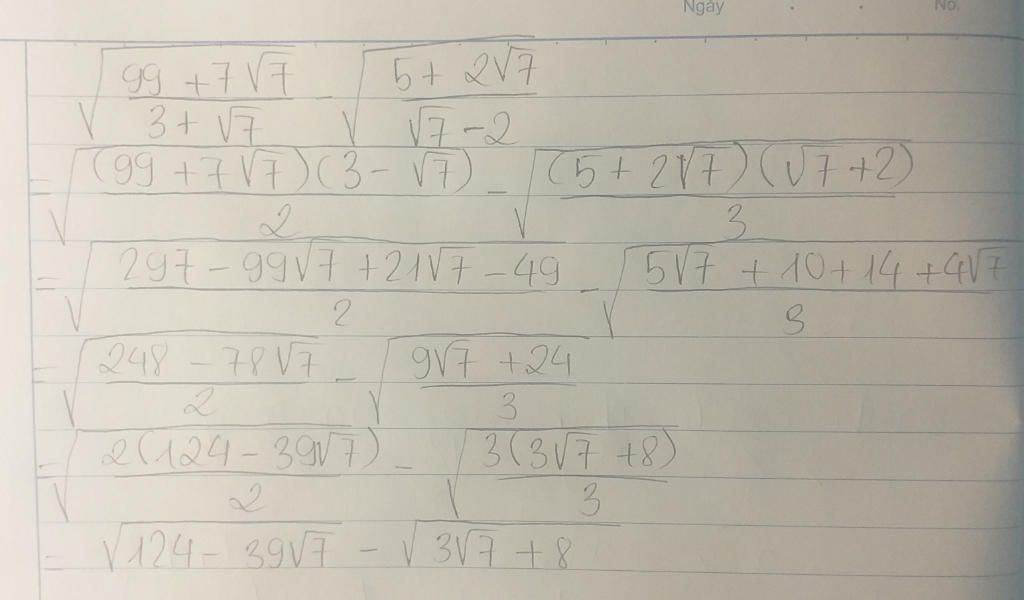 Ngày No.
√((99 + 7√7)/(3 + √7)) - √((5 + 2√7)/(√7 - 2))
= √((99 + 7√7)(3 - √7)/2) - √((5 + 2√7)(√7 + 2)/3)
= √((297 - 99√7 + 21√7 - 49)/2) - √((5√7 + 10 + 14 + 4√7)/3)
= √((248 - 78√7)/2) - √((9√7 + 24)/3)
= √(2(124 - 39√7)/2) - √(3(3√7 + 8)/3)
= √(124 - 39√7) - √(3√7 + 8)